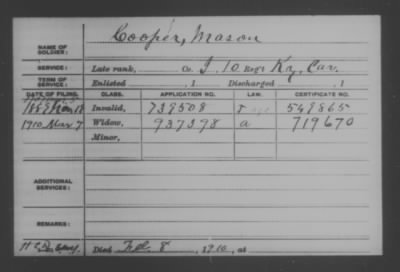 NAME OF SOLDIER: Cooper, Mason
SERVICE: Late rank, Co. I, 10 Reg't Ky. Cav.
TERM OF SERVICE: Enlisted , 1 Discharged , 1
DATE OF FILING. CLASS. APPLICATION NO. LAW. CERTIFICATE NO.
1889 Invalid, 739508 549865
1910 Mar 7 Widow, 937398 a 719670
Minor,
ADDITIONAL SERVICES:
REMARKS:
Died Feb. 8, 1910, at